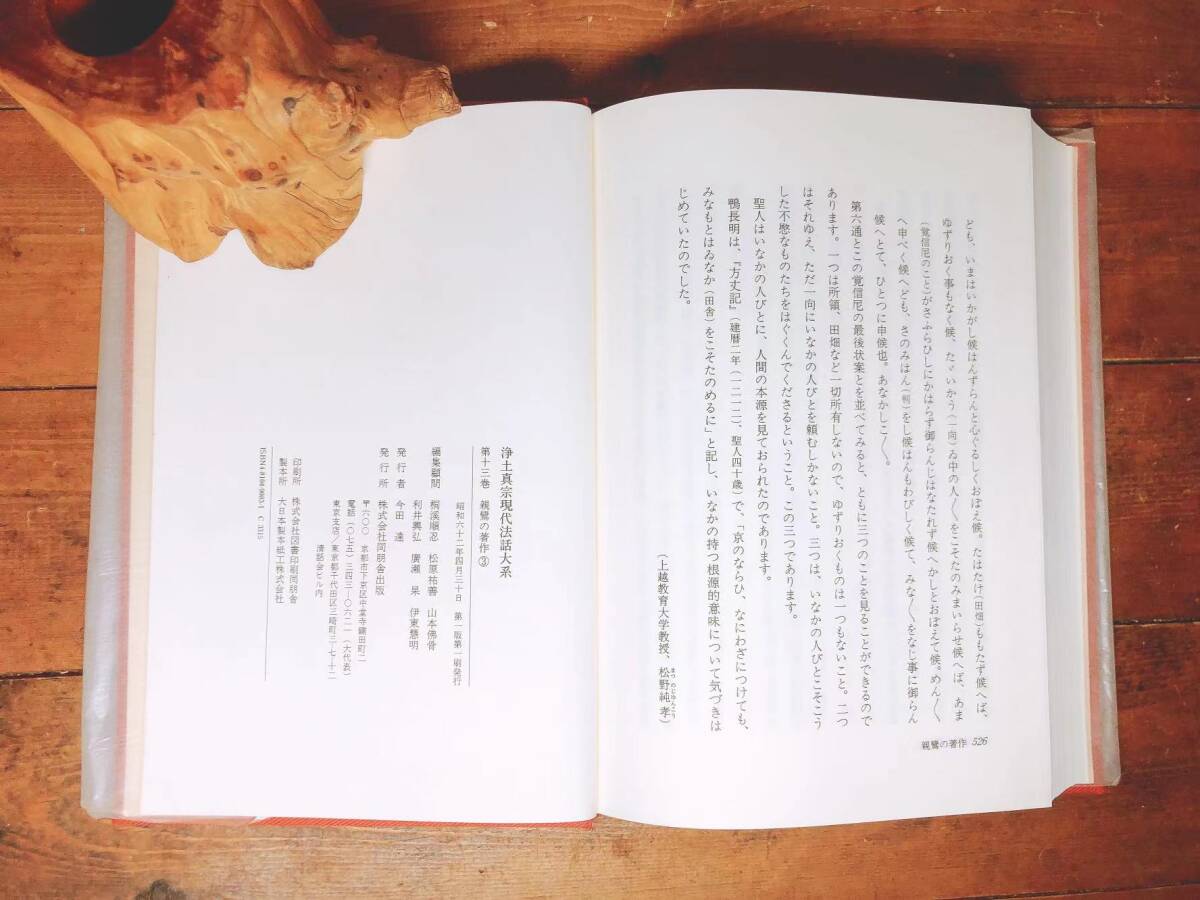 ども、いまはいかがし候はんずらんと心ぐるしくおぼえ候。たはたけ(田畑)ももたず候へば、
ゆずりおく事もなく候、たゞいかう(一向)ゐ中の人〲をこそたのみまいらせ候へば、あま
(覚信尼のこと)がさふらひしにかはらず御らんじはなたれず候へかしとおぼえて候。めん〱
へ申べく候へども、さのみはん(判)をし候はんもわびしく候て、みな〱をなじ事に御らん
候へとて、ひとつに申候也。あなかしこ〱。
第六通とこの覚信尼の最後状案とを並べてみると、ともに三つのことを見ることができるので
あります。一つは所領、田畑など一切所有しないので、ゆずりおくものは一つもないこと。二つ
はそれゆえ、ただ一向にいなかの人びとを頼むしかないこと。三つは、いなかの人びとこそこう
した不愍なものたちをはぐくんでくださるということ。この三つであります。
聖人はいなかの人びとに、人間の本源を見ておられたのであります。
鴨長明は、『方丈記』(建暦二年(一二一二)、聖人四十歳)で、「京のならひ、なにわざにつけても、
みなもとはゐなか(田舎)をこそたのめるに」と記し、いなかの持つ根源的意味について気づきは
じめていたのでした。
(上越教育大学教授、松野純孝)
まつのじゅんこう
親鸞の著作 526
浄土真宗現代法話大系
第十三巻 親鸞の著作③
昭和六十二年四月三十日 第一版第一刷発行
編集顧問 桐溪順忍 松原祐善 山本佛骨
利井興弘 廣瀬杲 伊東慧明
発行者 今田達
発行所 株式会社同朋舎出版
〒六〇〇 京都市下京区中堂寺鍵田町二
電話(〇七五)三四三―〇六二一(大代表)
東京支店/東京都千代田区三崎町三-七-十二
清話会ビル内
印刷所 株式会社図書印刷同朋舎
製本所 大日本製本紙工株式会社